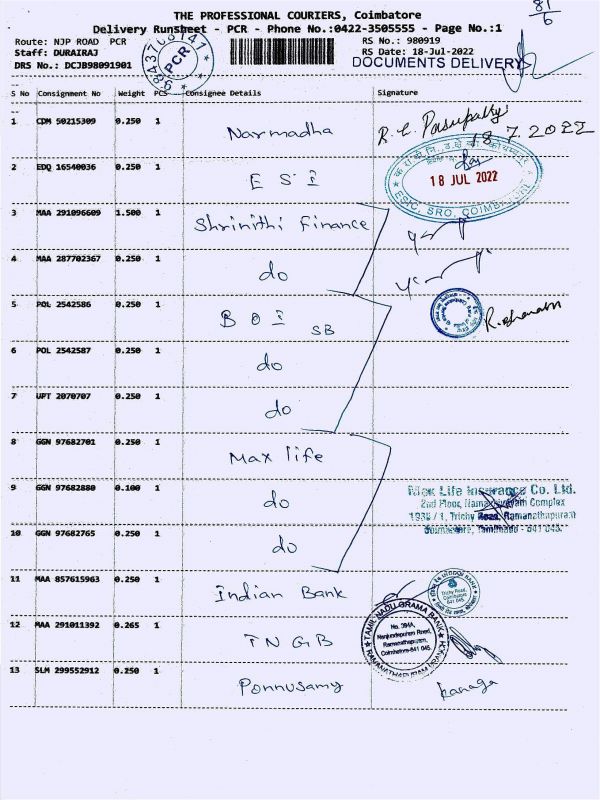 81
6
THE PROFESSIONAL COURIERS, Coimbatore
Delivery Runsheet - PCR - Phone No.:0422-3505555 - Page No.:1
Route: NJP ROAD PCR
RS No.: 980919
Staff: DURAIRAJ
RS Date: 18-Jul-2022
DRS No.: DCJB98091901
DOCUMENTS DELIVERY
PCR
S No Consignment No Weight PCS Consignee Details Signature
1 CDM 50215309 0.250 1 Narmadha
18.7.2022
2 EDQ 16540036 0.250 1 E S I
18 JUL 2022
ESIC, SRO, COIMBATORE
3 MAA 291096609 1.500 1 Shrinithi Finance
4 MAA 287702367 0.250 1 do
5 POL 2542586 0.250 1 B O I SB
6 POL 2542587 0.250 1 do
7 UPT 2070707 0.250 1 do
8 GGN 97682701 0.250 1 Max life
9 GGN 97682880 0.100 1 do
Max Life Insurance Co. Ltd.
2nd Floor, Complex
Trichy Road, Ramanathapuram
Coimbatore, Tamilnadu - 641 045.
10 GGN 97682765 0.250 1 do
11 MAA 857615963 0.250 1 Indian Bank
Trichy Road,
Coimbatore
641 045
12 MAA 291011392 0.265 1 T N G B
TAMIL NADU GRAMA BANK
No. 384A,
Nanjundapuram Road,
Ramanathapuram,
Coimbatore-641 045.
13 SLM 299552912 0.250 1 Ponnusamy kanaga